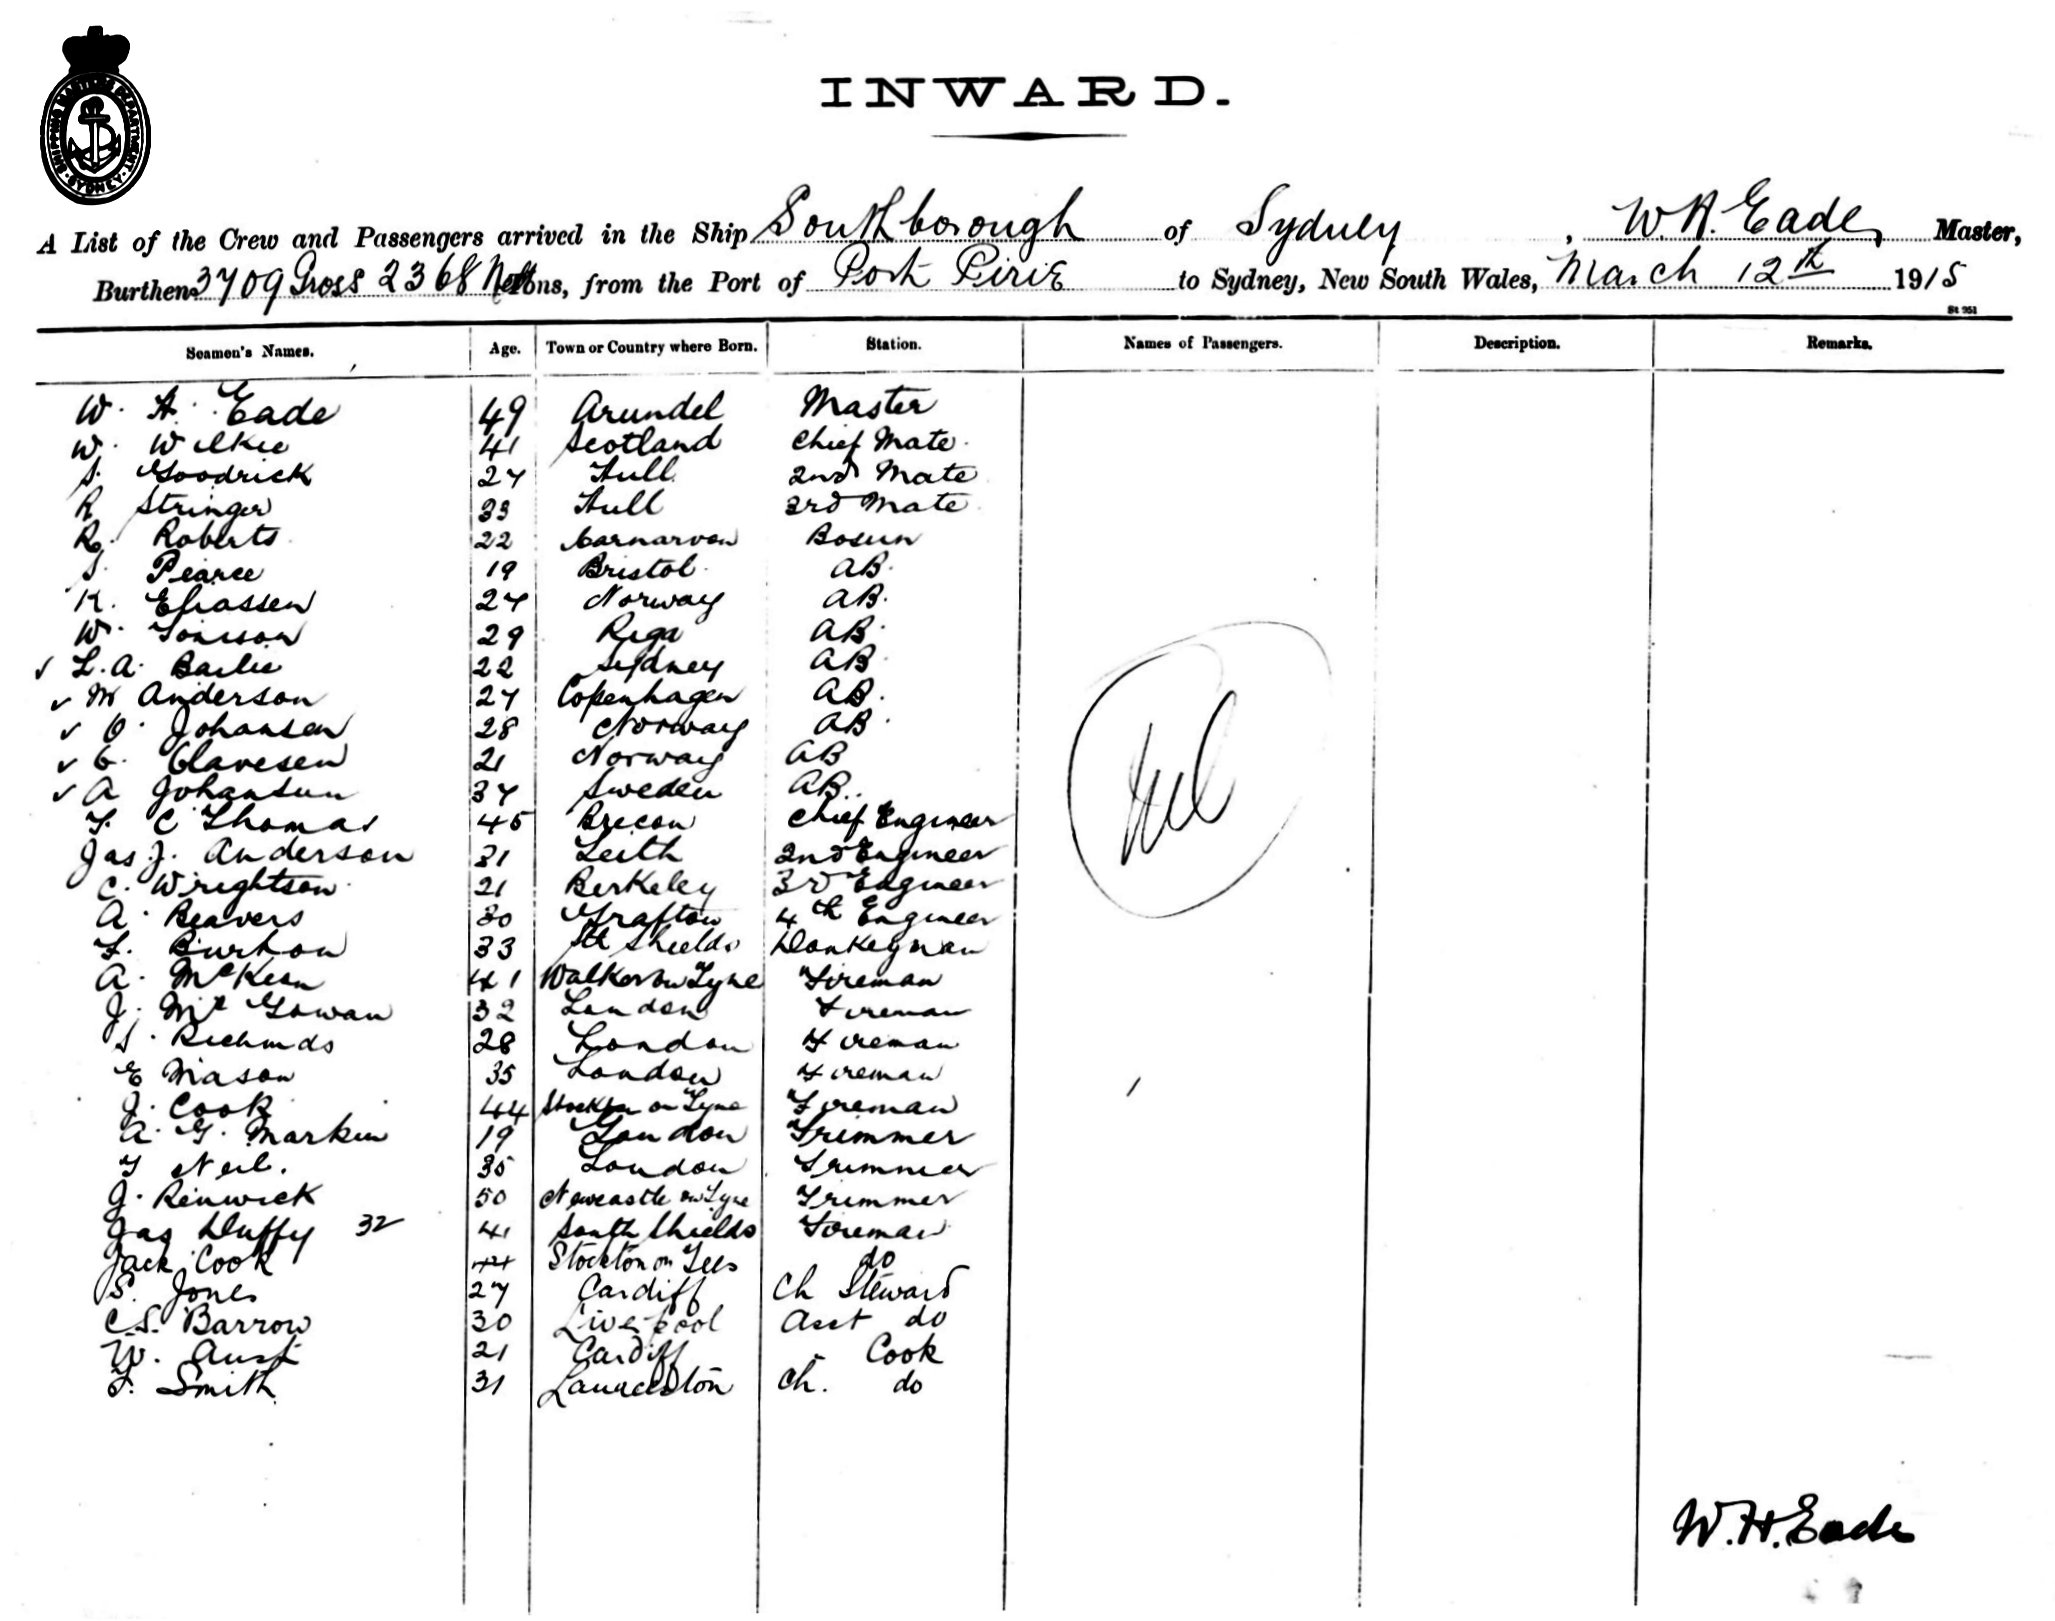 SHIPPING MASTER'S DEPARTMENT
SYDNEY
INWARD.
A List of the Crew and Passengers arrived in the Ship Southborough of Sydney, W. H. Eade, Master,
Burthen 3709 Gross 2368 Nett Tons, from the Port of Port Pirie to Sydney, New South Wales, March 12th 1915
St 951
Seamen's Names. Age. Town or Country where Born. Station. Names of Passengers. Description. Remarks.
W. H. Eade 49 Arundel Master
W. Wilkie 41 Scotland Chief Mate
S. Goodrick 27 Hull 2nd Mate
R Stringer 33 Hull 3rd Mate
R. Roberts 22 Carnarvon Bosun
Pearce 19 Bristol AB.
K. Eliassen 27 Norway AB.
W. 29 Riga AB.
✓ L. A. Bailie 22 Sydney AB
✓ M Anderson 27 Copenhagen AB.
✓ O. Johansen 28 Norway AB
✓ C. Clavesen 21 Norway AB
✓ A Johansun 37 Sweden AB.
T. C Thomas 45 Brecon Chief Engineer
Jas. J. Anderson 31 Leith 2nd Engineer
C. Wrightson 21 Berkeley 3rd Engineer
A. Beavers 30 Grafton 4th Engineer
Nil
F. Burton 33 Sth Shields Donkeyman
A. McKeen 41 Walker on Tyne Fireman
J. McGowan 32 London Fireman
S. Richmds 28 London Fireman
E Mason 35 London Fireman
J. Cook 44 Stockton on Tyne Fireman
A. G. Markin 19 London Trimmer
T Neil. 35 London Trimmer
J. Renwick 50 Newcastle on Tyne Trimmer
Jas Duffy 32 41 South Shields Foreman
Jack Cook 44 Stockton on Tees do
S. Jones 27 Cardiff Ch Steward
C. S. Barrow 30 Liverpool Asst do
W. Aust 21 Cardiff " Cook
F. Smith 31 Launceston Ch. do
W. H. Eade